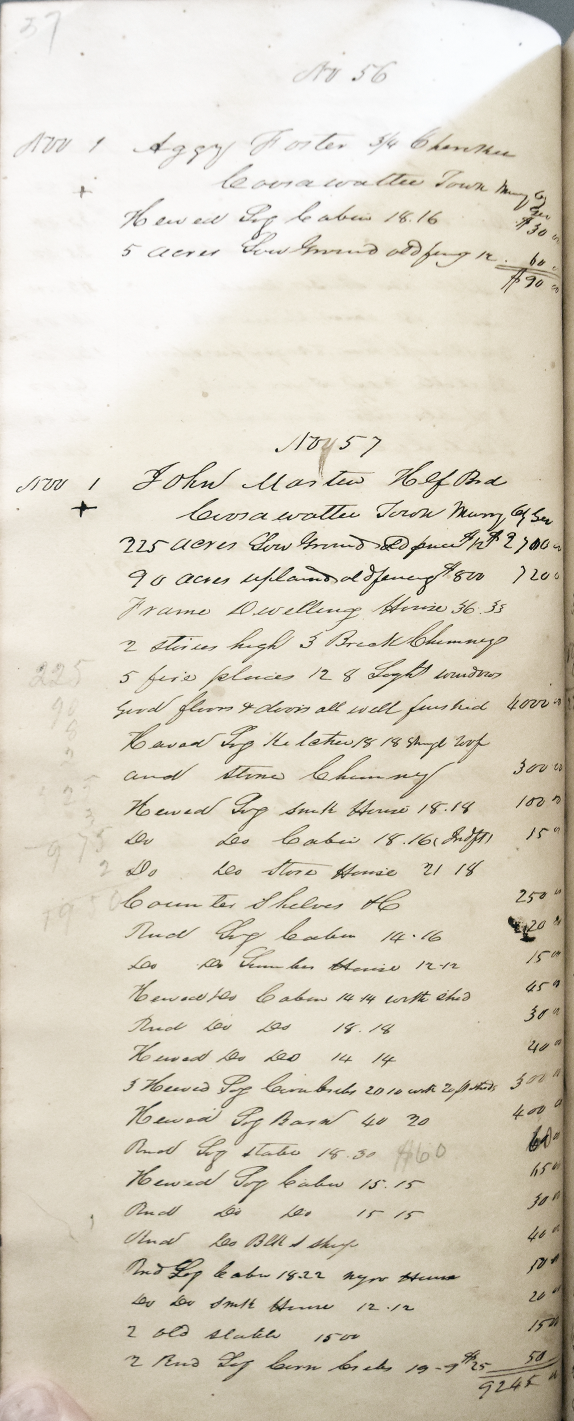 37
No 56
Nov 1 Aggy Foster 3/4 Cherokee
+ Coosawattee Town Murry Cy Geo
Hewed Log Cabin 18.16 $30 00
5 acres Low Ground old feng 12. 60 00
$90 00
No 57
Nov 1 John Marten Hlf Brd
+ Coosawattee Town Murry Cy Geo
225 acres Low Ground old fence $12 $2700 00
90 acres upland old fencing $8 00 720
Frame Dwelling House 36.33
2 stires high 3 Brick Chimneys
5 fire places 12 8 Light windows
good floors & doors all well finished 4000 00
Hewed Log Kitchen 18 18 shngl roof
and stone Chimney 300 00
Hewed Log smk House 18.18 100 00
Do Do Cabin 18.16 15 00
Do Do Store House 21 18
Counter Shelves &C 250 00
Rnd Log Cabin 14.16 20 00
Do Do Lumber House 12.12 15 00
Hewed Do Cabin 14 14 with shed 45 00
Rnd Do Do 18.18 30 00
Hewed Do Do 14 14 40 00
3 Hewed Log Corn Cribs 20 10 with sheds 300 00
Hewed Log Barn 40 20 400 00
Rnd Log stable 18.30 $60 60
Hewed Log Cabin 15.15 65 00
Rnd Do Do 15 15 30 00
Rnd Do Blk S shop 40 00
Rnd Log Cabin 18.22 negro House 50 00
Do Do smk House 12.12 20 00
2 old stable 15 00 15 00
2 Rnd Log Corn Cribs 19-9 $25 50
9245 00
225
90
8
975
2
1950